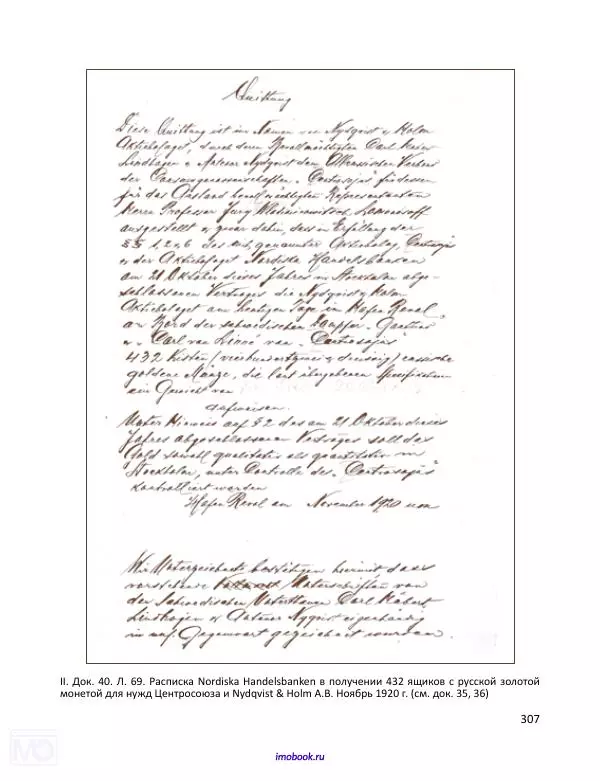 Quittung
Diese Quittung ist im Namen von Nydqvist & Holm
Aktiebolaget, durch deren Bevollmächtigten Carl
Lindhagen & Nydqvist dem Allrussischen Verband
der Consumgenossenschaften „Centrosojus" für dessen
für das Ausland bevollmächtigten Representanten
Herrn Professor Jurij Wladimirowitsch Lomonossoff
ausgestellt & zwar dahin, dass in Erfüllung der
§§ 1, 2 & 6 des genannter Aktiebolag, Centrosojus
& der Aktiebolaget Nordiska Handelsbanken
am 21 Oktober dieses Jahres in Stockholm abge-
schlossenen Vertrages die Nydqvist & Holm
Aktiebolaget am heutigen Tage in Hafen Reval,
an Bord der schwedischen Dampfer
& „Carl von Linné" von „Centrosojus"
432 Kisten (vierhundertzwei & dreissig) russische
goldene Münze, die laut übergebenen Specifikation
ein Gewicht von
aufweisen.
Unter Hinweis auf § 2 des am 21 Oktober dieses
Jahres abgeschlossenen Vertrages soll das
Gold sowohl qualitativ als quantitativ in
Stockholm, unter Controlle des „Centrosojus"
kontrolliert werden
Hafen Reval am November 1920
Wir Unterzeichnete bestätigen hiermit dass
vorstehende Unterschriften von
den Schwedischen Unterthanen Carl
Lindhagen & Nyqvist eigenhändig
in uns. Gegenwart gezeichnet wurden.
II. Док. 40. Л. 69. Расписка Nordiska Handelsbanken в получении 432 ящиков с русской золотой
монетой для нужд Центросоюза и Nydqvist & Holm A.B. Ноябрь 1920 г. (см. док. 35, 36)
307
imobook.ru